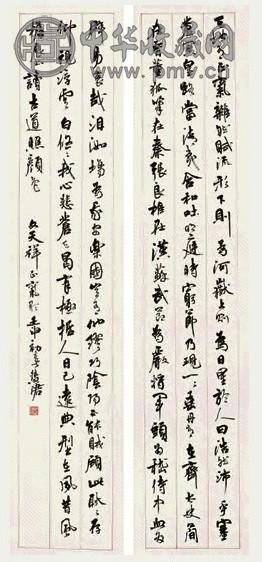 中华收藏网
天地有正氣雜然賦流形下則為河嶽上則為日星於人曰浩然沛乎塞
蒼冥皇路當清夷含和吐明庭時窮節乃現一一垂丹青在齊太史簡
在晉董狐筆在秦張良椎在漢蘇武節為嚴將軍頭為嵇侍中血為
哉沮洳場為我安樂國豈有他繆巧陰陽不能賊顧此耿耿存
仰視浮雲白悠悠我心悲蒼天曷有極哲人日已遠典型在夙昔風
簷展書讀古道照顏色 文天祥正氣歌 壬申初春